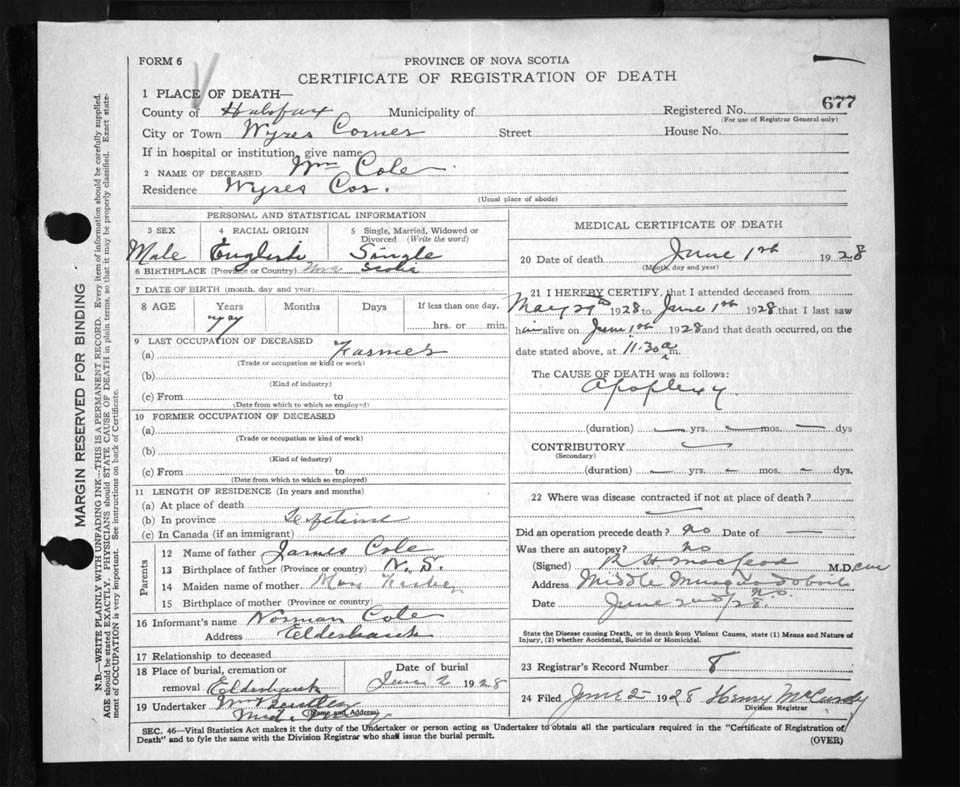 FORM 6
PROVINCE OF NOVA SCOTIA
CERTIFICATE OF REGISTRATION OF DEATH
677
1 PLACE OF DEATH—
County of Halifax Municipality of Registered No.
(For use of Registrar General only)
City or Town Wyses Corner Street House No.
If in hospital or institution, give name
2 NAME OF DECEASED Wm Cole
Residence Wyses Cor.
(Usual place of abode)
PERSONAL AND STATISTICAL INFORMATION
3 SEX 4 RACIAL ORIGIN 5 Single, Married, Widowed or Divorced (Write the word)
Male English Single
6 BIRTHPLACE (Province or Country) Nova Scotia
7 DATE OF BIRTH (month, day and year)
8 AGE Years Months Days If less than one day,
hrs. or min.
9 LAST OCCUPATION OF DECEASED
(a) Farmer
(Trade or occupation or kind or work)
(b)
(Kind of industry)
(c) From to
(Date from which to which so employed)
10 FORMER OCCUPATION OF DECEASED
(a)
(Trade or occupation or kind of work)
(b)
(Kind of industry)
(c) From to
(Date from which to which so employed)
11 LENGTH OF RESIDENCE (In years and months)
(a) At place of death
(b) In province Lifetime
(c) In Canada (if an immigrant)
Parents
12 Name of father James Cole
13 Birthplace of father (Province or country) N.S.
14 Maiden name of mother
15 Birthplace of mother (Province or country)
16 Informant's name Norman Cole
Address Elderbank
17 Relationship to deceased
18 Place of burial, cremation or Date of burial
removal Elderbank June 2 1928
19 Undertaker Wm
(Name and Address)
MEDICAL CERTIFICATE OF DEATH
20 Date of death June 1st 1928
(Month, day and year)
21 I HEREBY CERTIFY, that I attended deceased from
May 1928 to June 1st 1928 that I last saw
him alive on June 1st 1928 and that death occurred, on the
date stated above, at 11.30 a m.
The CAUSE OF DEATH was as follows:
Apoplexy
(duration) — yrs. — mos. — dys
CONTRIBUTORY
(Secondary)
(duration) — yrs. — mos. — dys.
22 Where was disease contracted if not at place of death?
Did an operation precede death? no Date of —
Was there an autopsy? no
(Signed) R H MacLeod M.D.
Address Middle Musquodoboit
N.S.
Date June 2nd /28.
State the Disease causing Death, or in death from Violent Causes, state (1) Means and Nature of
Injury, (2) whether Accidental, Suicidal or Homicidal.
23 Registrar's Record Number 8
24 Filed June 2 1928 Henry McCurdy
Division Registrar
SEC. 46—Vital Statistics Act makes it the duty of the Undertaker or person acting as Undertaker to obtain all the particulars required in the "Certificate of Registration of
Death" and to fyle the same with the Division Registrar who shall issue the burial permit.
(OVER)
MARGIN RESERVED FOR BINDING
N.B.—WRITE PLAINLY WITH UNFADING INK—THIS IS A PERMANENT RECORD. Every item of information should be carefully supplied.
AGE should be stated EXACTLY. PHYSICIANS should STATE CAUSE OF DEATH in plain terms, so that it may be properly classified. Exact state-
ment of OCCUPATION is very important. See instructions on back of Certificate.